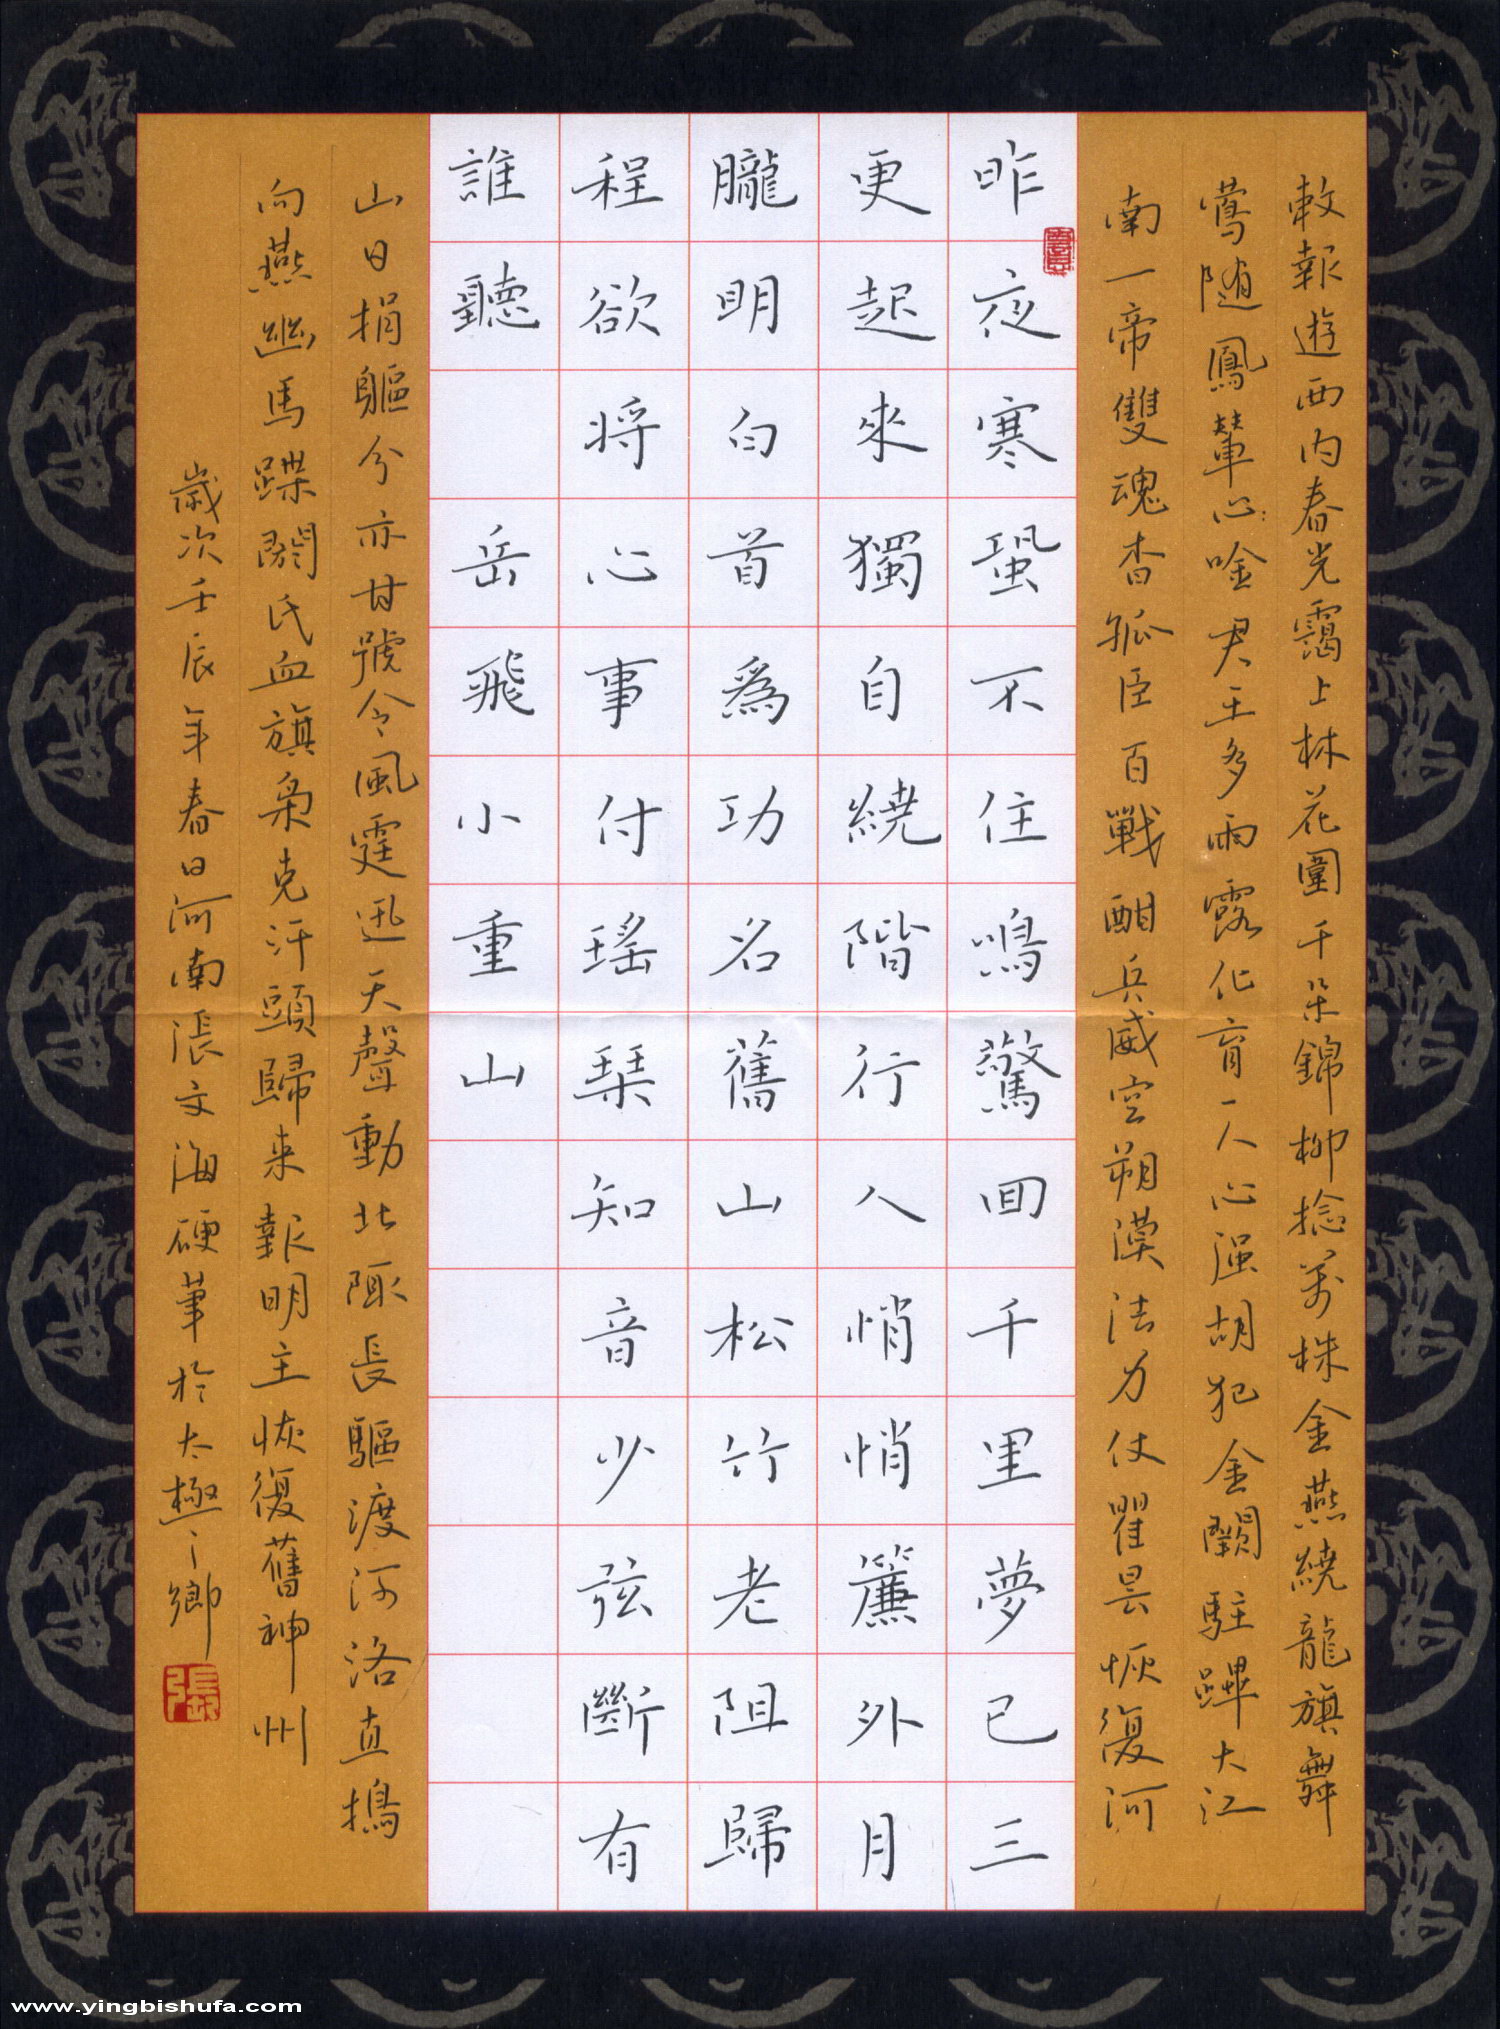 敕報遊西内春光靄上林花圍千朵錦柳捻萬株金燕繞龍旗舞
鶯随鳳輦心唫君王多雨露化育一人心强胡犯金闕駐蹕大江
南一帝雙魂杳孤臣百戰酣兵威空朔漠法力仗瞿昙恢復河
昨夜寒蛩不住鳴驚回千里夢已三
更起來獨自繞階行人悄悄簾外月
朧明白首爲功名舊山松竹老阻歸
程欲將心事付瑤琴知音少弦斷有
誰聽 岳飛小重山
山日捐軀分亦甘號令風霆迅天聲動北陬長驅渡河洛直搗
向燕幽馬蹀閼氏血旗枭克汗頭歸来報明主恢復舊神州
歲次壬辰年春日河南張文海硬筆於太極之鄉
張
www.yingbishufa.com